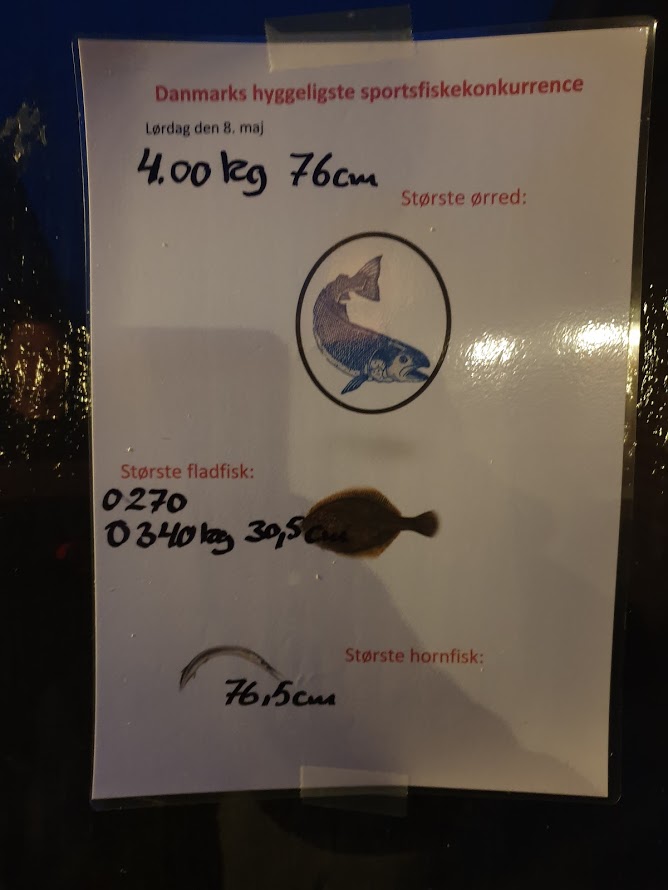 Danmarks hyggeligste sportsfiskekonkurrence
Lørdag den 8. maj
4.00 kg 76cm
Største ørred:
Største fladfisk:
0270
0340kg 30,5cm
Største hornfisk:
76,5cm